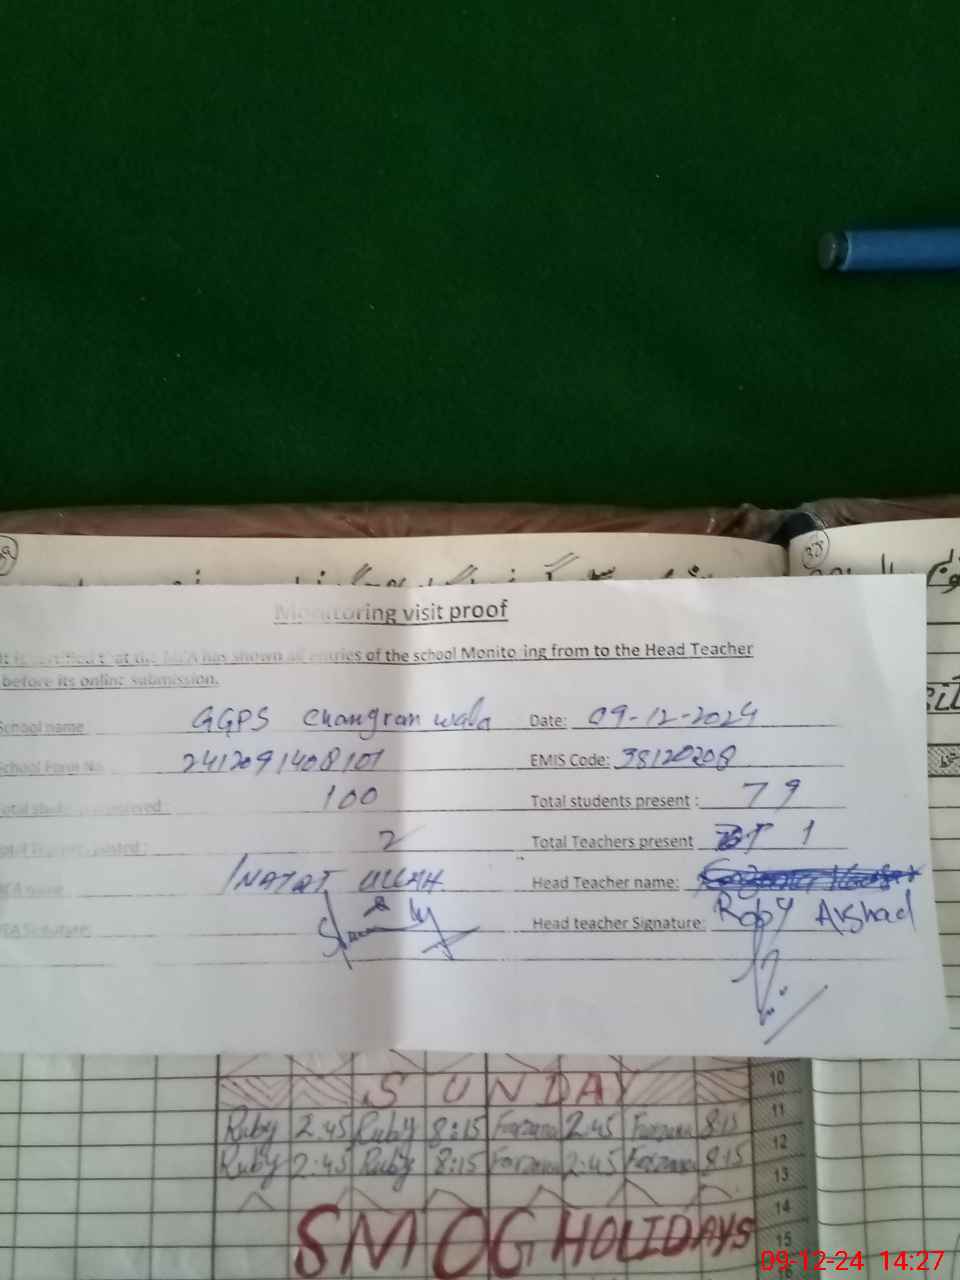 38
Monitoring visit proof
has shown entries of the school Monito ing from to the Head Teacher
before its online submission.
School name GGPS Changran wala Date: 09-12-2024
School Form No. 2412091408101 EMIS Code: 38120208
100 Total students present : 79
2 Total Teachers present 1
INAYAT ULLAH Head Teacher name:
Head teacher Signature: Roby Arshad
SUNDAY
10
11
Ruby 2:45 Ruby 8:15 Farzana 2:45 Farzana 8:15
12
Ruby 2:45 Ruby 8:15 Farzana 2:45 Farzana 8:15
13
14
SMOG HOLIDAYS
15
09-12-24 14:27